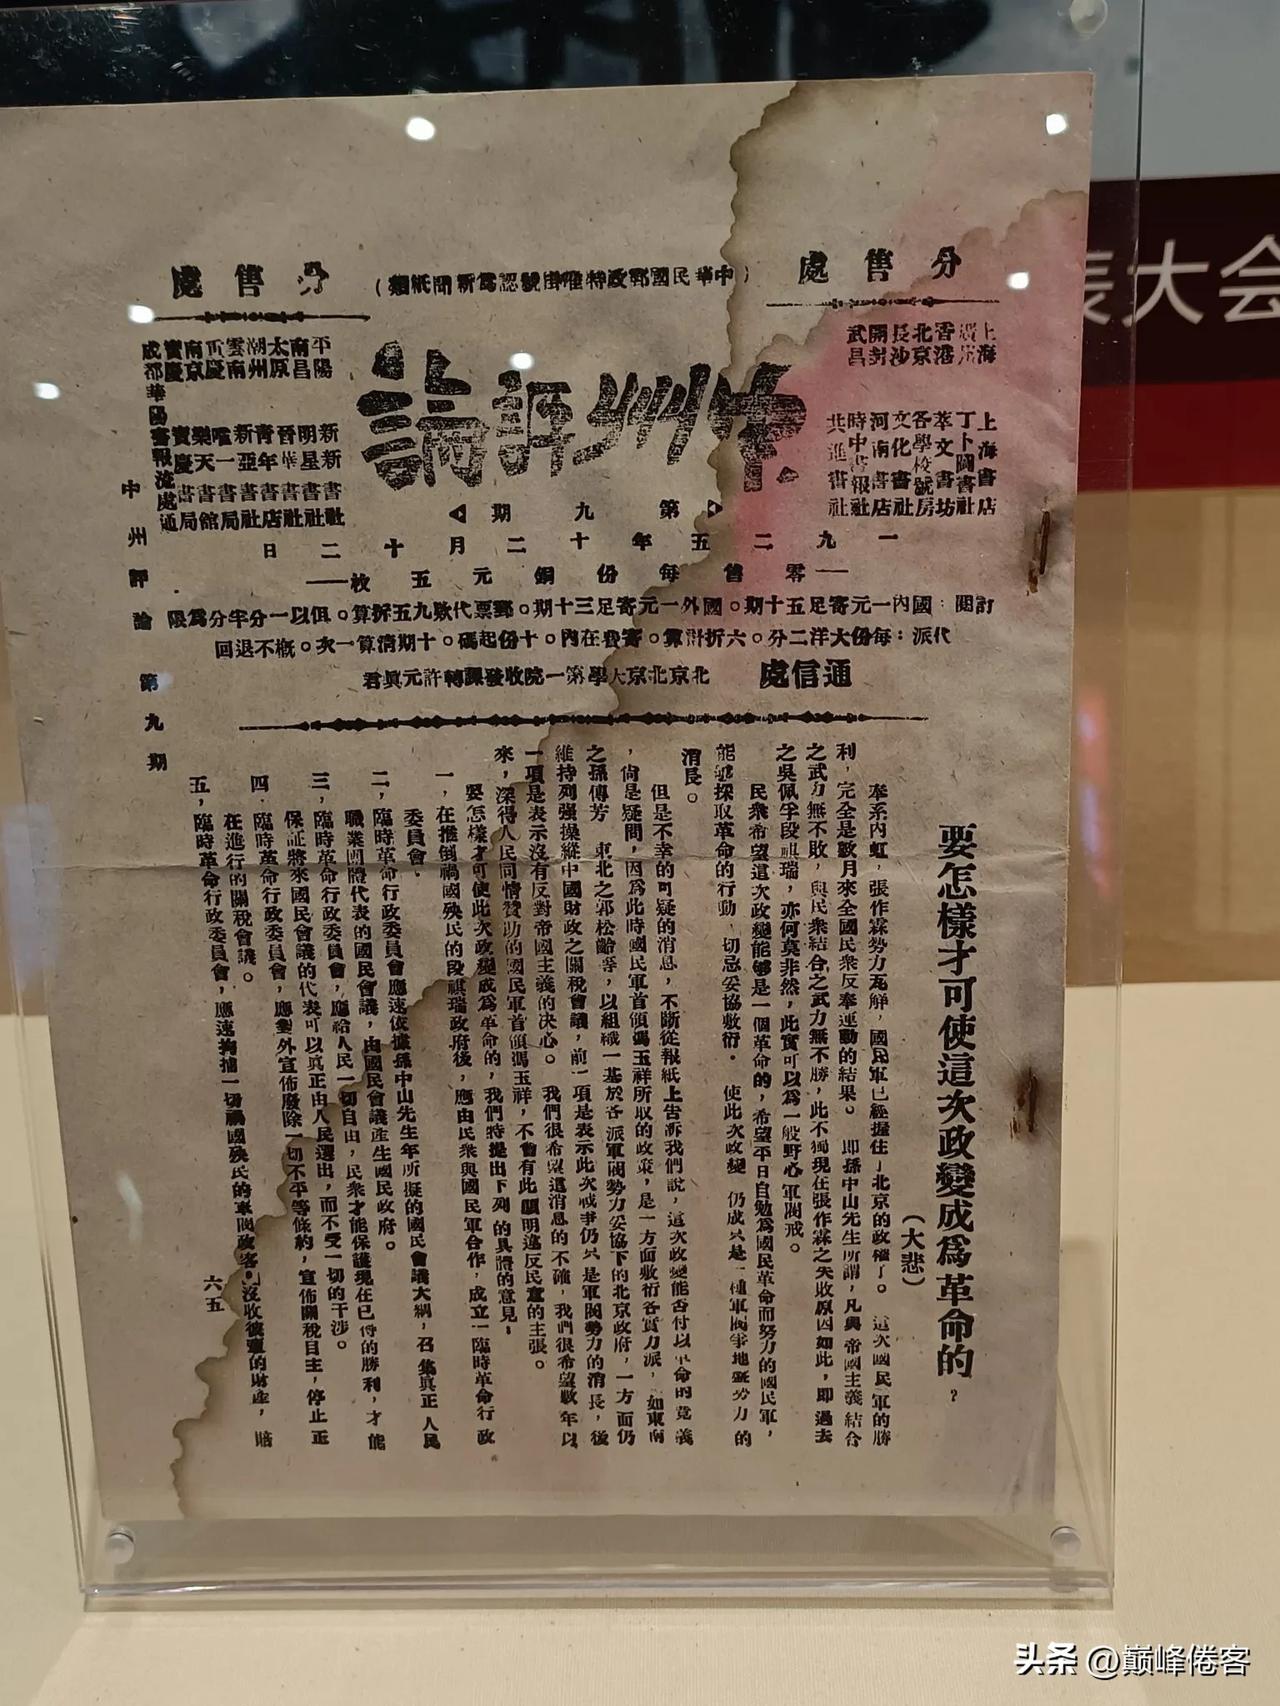 表大会
(中華民國郵政特准掛號認爲新聞紙類)
分售處
上海 上海書店
廣州 丁卜圖書社
香港 萃文書坊
北京 各學校號房
長沙 文化書社
開封 河南書店
武昌 時中書報社
共進書社
中州評論
分售處
平陽 新新書社
南昌 明星書社
太原 晋華書社
潮州 青年書店
雲南 新亞書社
重慶 唯一書局
南京 樂天書館
寶慶 寶慶書局
成都華陽書報流通處
第九期
一九二五年十二月十二日
零售每份銅元五枚
訂閱:國內一元寄足五十期。國外一元寄足三十期。郵票代款九五折算。但以一分半分爲限
代派:每份大洋二分。六折計算。寄費在內。十份起碼。十期清算一次。概不退回
通信處 北京北京大學第一院收發課轉許元眞君
要怎樣才可使這次政變成爲革命的?
(大悲)
奉系內虹,張作霖勢力瓦解,國民軍已經握住了北京的政權了。這次國民軍的勝
利,完全是數月來全國民衆反奉運動的結果。即孫中山先生所謂,凡與帝國主義結合
之武力無不敗,與民衆結合之武力無不勝,此不獨現在張作霖之失敗原因如此,即過去
之吳佩孚段祺瑞,亦何莫非然,此實可以爲一般野心軍閥戒。
民衆希望這次政變能够是一個革命的,希望平日自勉爲國民革命而努力的國民軍,
能够採取革命的行動,切忌妥協敷衍。使此次政變仍成只是一種軍閥爭地盤勢力的
消長。
但是不幸的可疑的消息,不斷從報紙上告訴我們說,這次政變能否付以革命的意義
,尚是疑問,因爲此時國民軍首領馮玉祥所取的政策,是一方面敷衍各實力派,如東南
之孫傳芳 東北之郭松齡等,以組織一基於各派軍閥勢力妥協下的北京政府,一方面仍
維持列强操縱中國財政之關稅會議,前一項是表示此次戰爭仍只是軍閥勢力的消長,後
一項是表示沒有反對帝國主義的决心。我們很希望這消息的不確,我們很希望數年以
來,深得人民同情贊助的國民軍首領馮玉祥,不會有此顯明違反民意的主張。
要怎樣才可使此次政變成爲革命的,我們特提出下列的具體的意見:
一,在推倒禍國殃民的段祺瑞政府後,應由民衆與國民軍合作,成立一臨時革命行政
委員會。
二,臨時革命行政委員會應速依據孫中山先生年所擬的國民會議大綱,召集真正人民
職業團體代表的國民會議,由國民會議產生國民政府。
三,臨時革命行政委員會,應給人民一切自由,民衆才能保護現在已得的勝利,才能
保証將來國民會議的代表可以眞正由人民選出,而不受一切的干涉。
四,臨時革命行政委員會,應對外宣佈廢除一切不平等條約,宣佈關稅自主,停止正
在進行的關稅會議。
五,臨時革命行政委員會,應速拘捕一切禍國殃民的軍閥政客,沒收彼輩的財產,賠
中州評論 第九期
六五
头条 @巅峰倦客